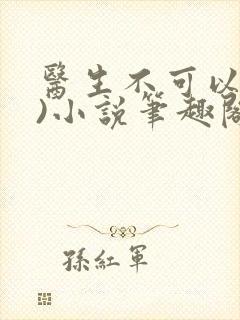 醫生不可以
)小說筆趣閣
孫紅軍